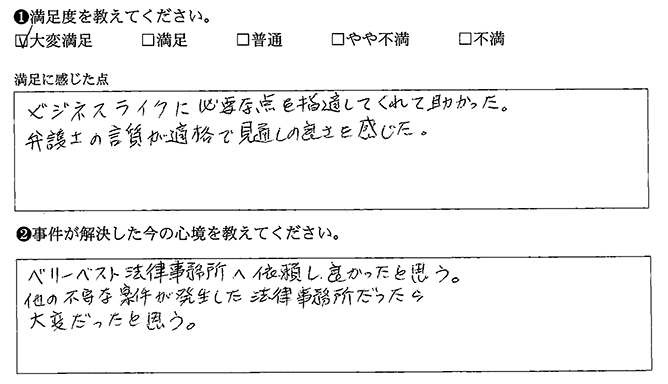 ❶満足度を教えてください。
☑大変満足 □満足 □普通 □やや不満 □不満
満足に感じた点
ビジネスライクに必要な点を指適してくれて助かった。
弁護士の言質が適格で見通しの良さを感じた。
❷事件が解決した今の心境を教えてください。
ベリーベスト法律事務所へ依頼し良かったと思う。
他の不要な案件が発生した法律事務所だったら
大変だったと思う。